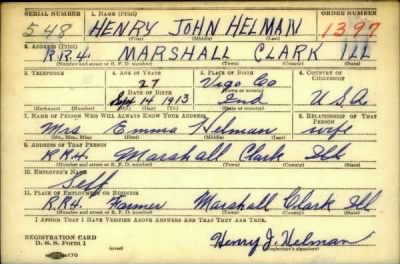 SERIAL NUMBER 1. NAME (Print) ORDER NUMBER
548 HENRY JOHN HELMAN 1397
(First) (Middle) (Last)
2. ADDRESS (Print)
R.R.4. MARSHALL CLARK ILL
(Number and street or R. F. D. number) (Town) (County) (State)
3. TELEPHONE 4. AGE IN YEARS 5. PLACE OF BIRTH 6. COUNTRY OF CITIZENSHIP
27 Vigo Co
DATE OF BIRTH (Town or county)
Sept 14 1913 Ind. U.S.A.
(Exchange) (Number) (Mo.) (Day) (Yr.) (State or country)
7. NAME OF PERSON WHO WILL ALWAYS KNOW YOUR ADDRESS 8. RELATIONSHIP OF THAT PERSON
Mrs Emma Helman wife
(Mr., Mrs., Miss) (First) (Middle) (Last)
9. ADDRESS OF THAT PERSON
R.R.4. Marshall Clark Ill
(Number and street or R. F. D. number) (Town) (County) (State)
10. EMPLOYER'S NAME
Self
11. PLACE OF EMPLOYMENT OR BUSINESS
R.R.4. Farmer Marshall Clark Ill
(Number and street or R. F. D. number) (Town) (County) (State)
I AFFIRM THAT I HAVE VERIFIED ABOVE ANSWERS AND THAT THEY ARE TRUE.
REGISTRATION CARD
D. S. S. Form 1 (over) Henry J. Helman
(Registrant's signature)